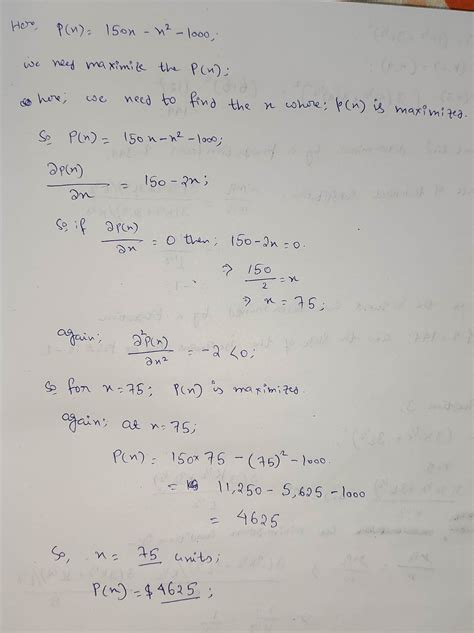 Here, P(x) = 150x - x² - 1000,
we need maximize the P(x);
here; we need to find the x where; P(x) is maximized.
So P(x) = 150x - x² - 1000;
∂P(x)/∂x = 150 - 2x;
So if ∂P(x)/∂x = 0 then; 150 - 2x = 0.
⇒ 150/2 = x
⇒ x = 75;
again; ∂²P(x)/∂x² = -2 < 0;
So for x = 75; P(x) is maximized.
again; at x = 75;
P(x) = 150 × 75 - (75)² - 1000
= 11,250 - 5,625 - 1000
= 4625
So, x = 75 units;
P(x) = $ 4625;